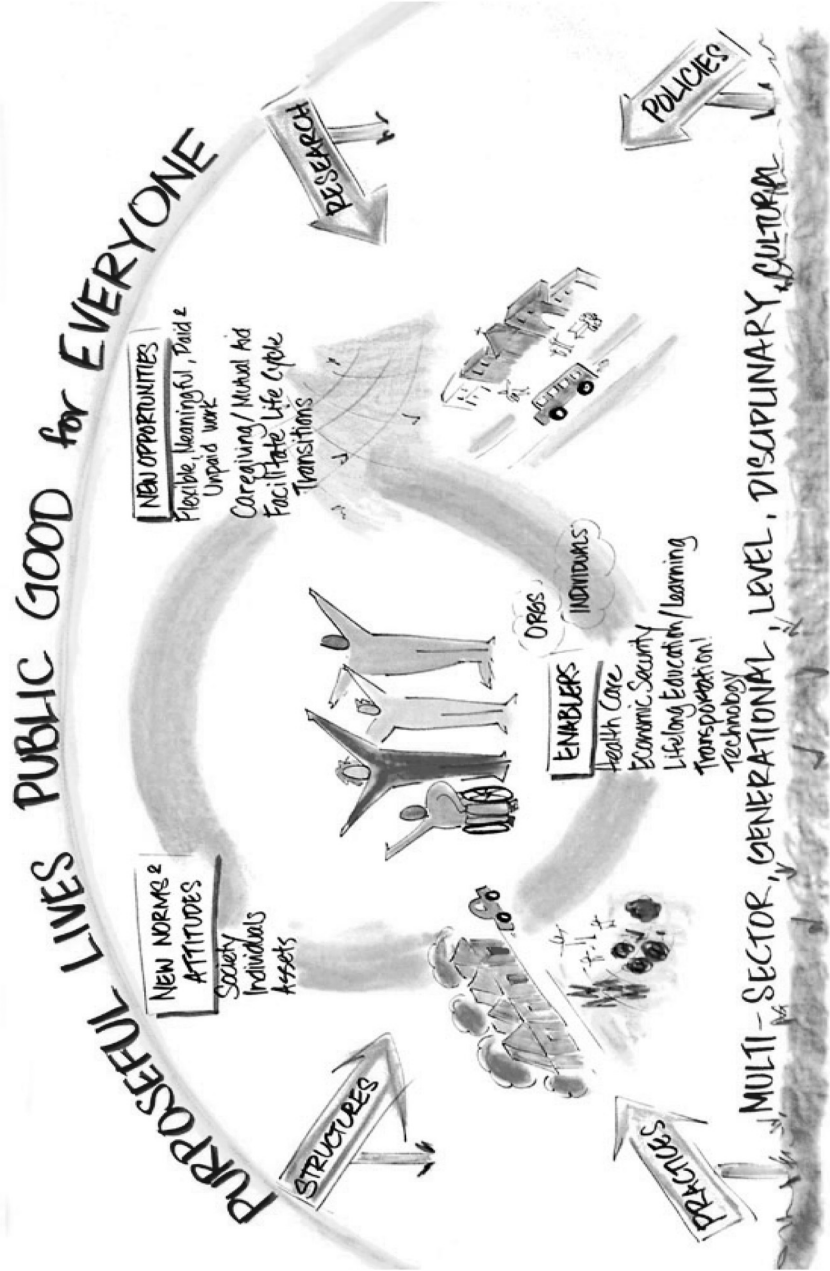 PURPOSEFUL LIVES PUBLIC GOOD for EVERYONE
STRUCTURES
RESEARCH
NEW NORMS &
ATTITUDES
Society
Individuals
Assets
NEW OPPORTUNITIES
Flexible, Meaningful, Paid &
Unpaid work
Caregiving/Mutual Aid
Facilitate Life Cycle
Transitions
ORGS
INDIVIDUALS
ENABLERS
Health Care
Economic Security
Lifelong Education/Learning
Transportation!
Technology
PRACTICES
POLICIES
MULTI-SECTOR, GENERATIONAL, LEVEL, DISCIPLINARY, CULTURAL